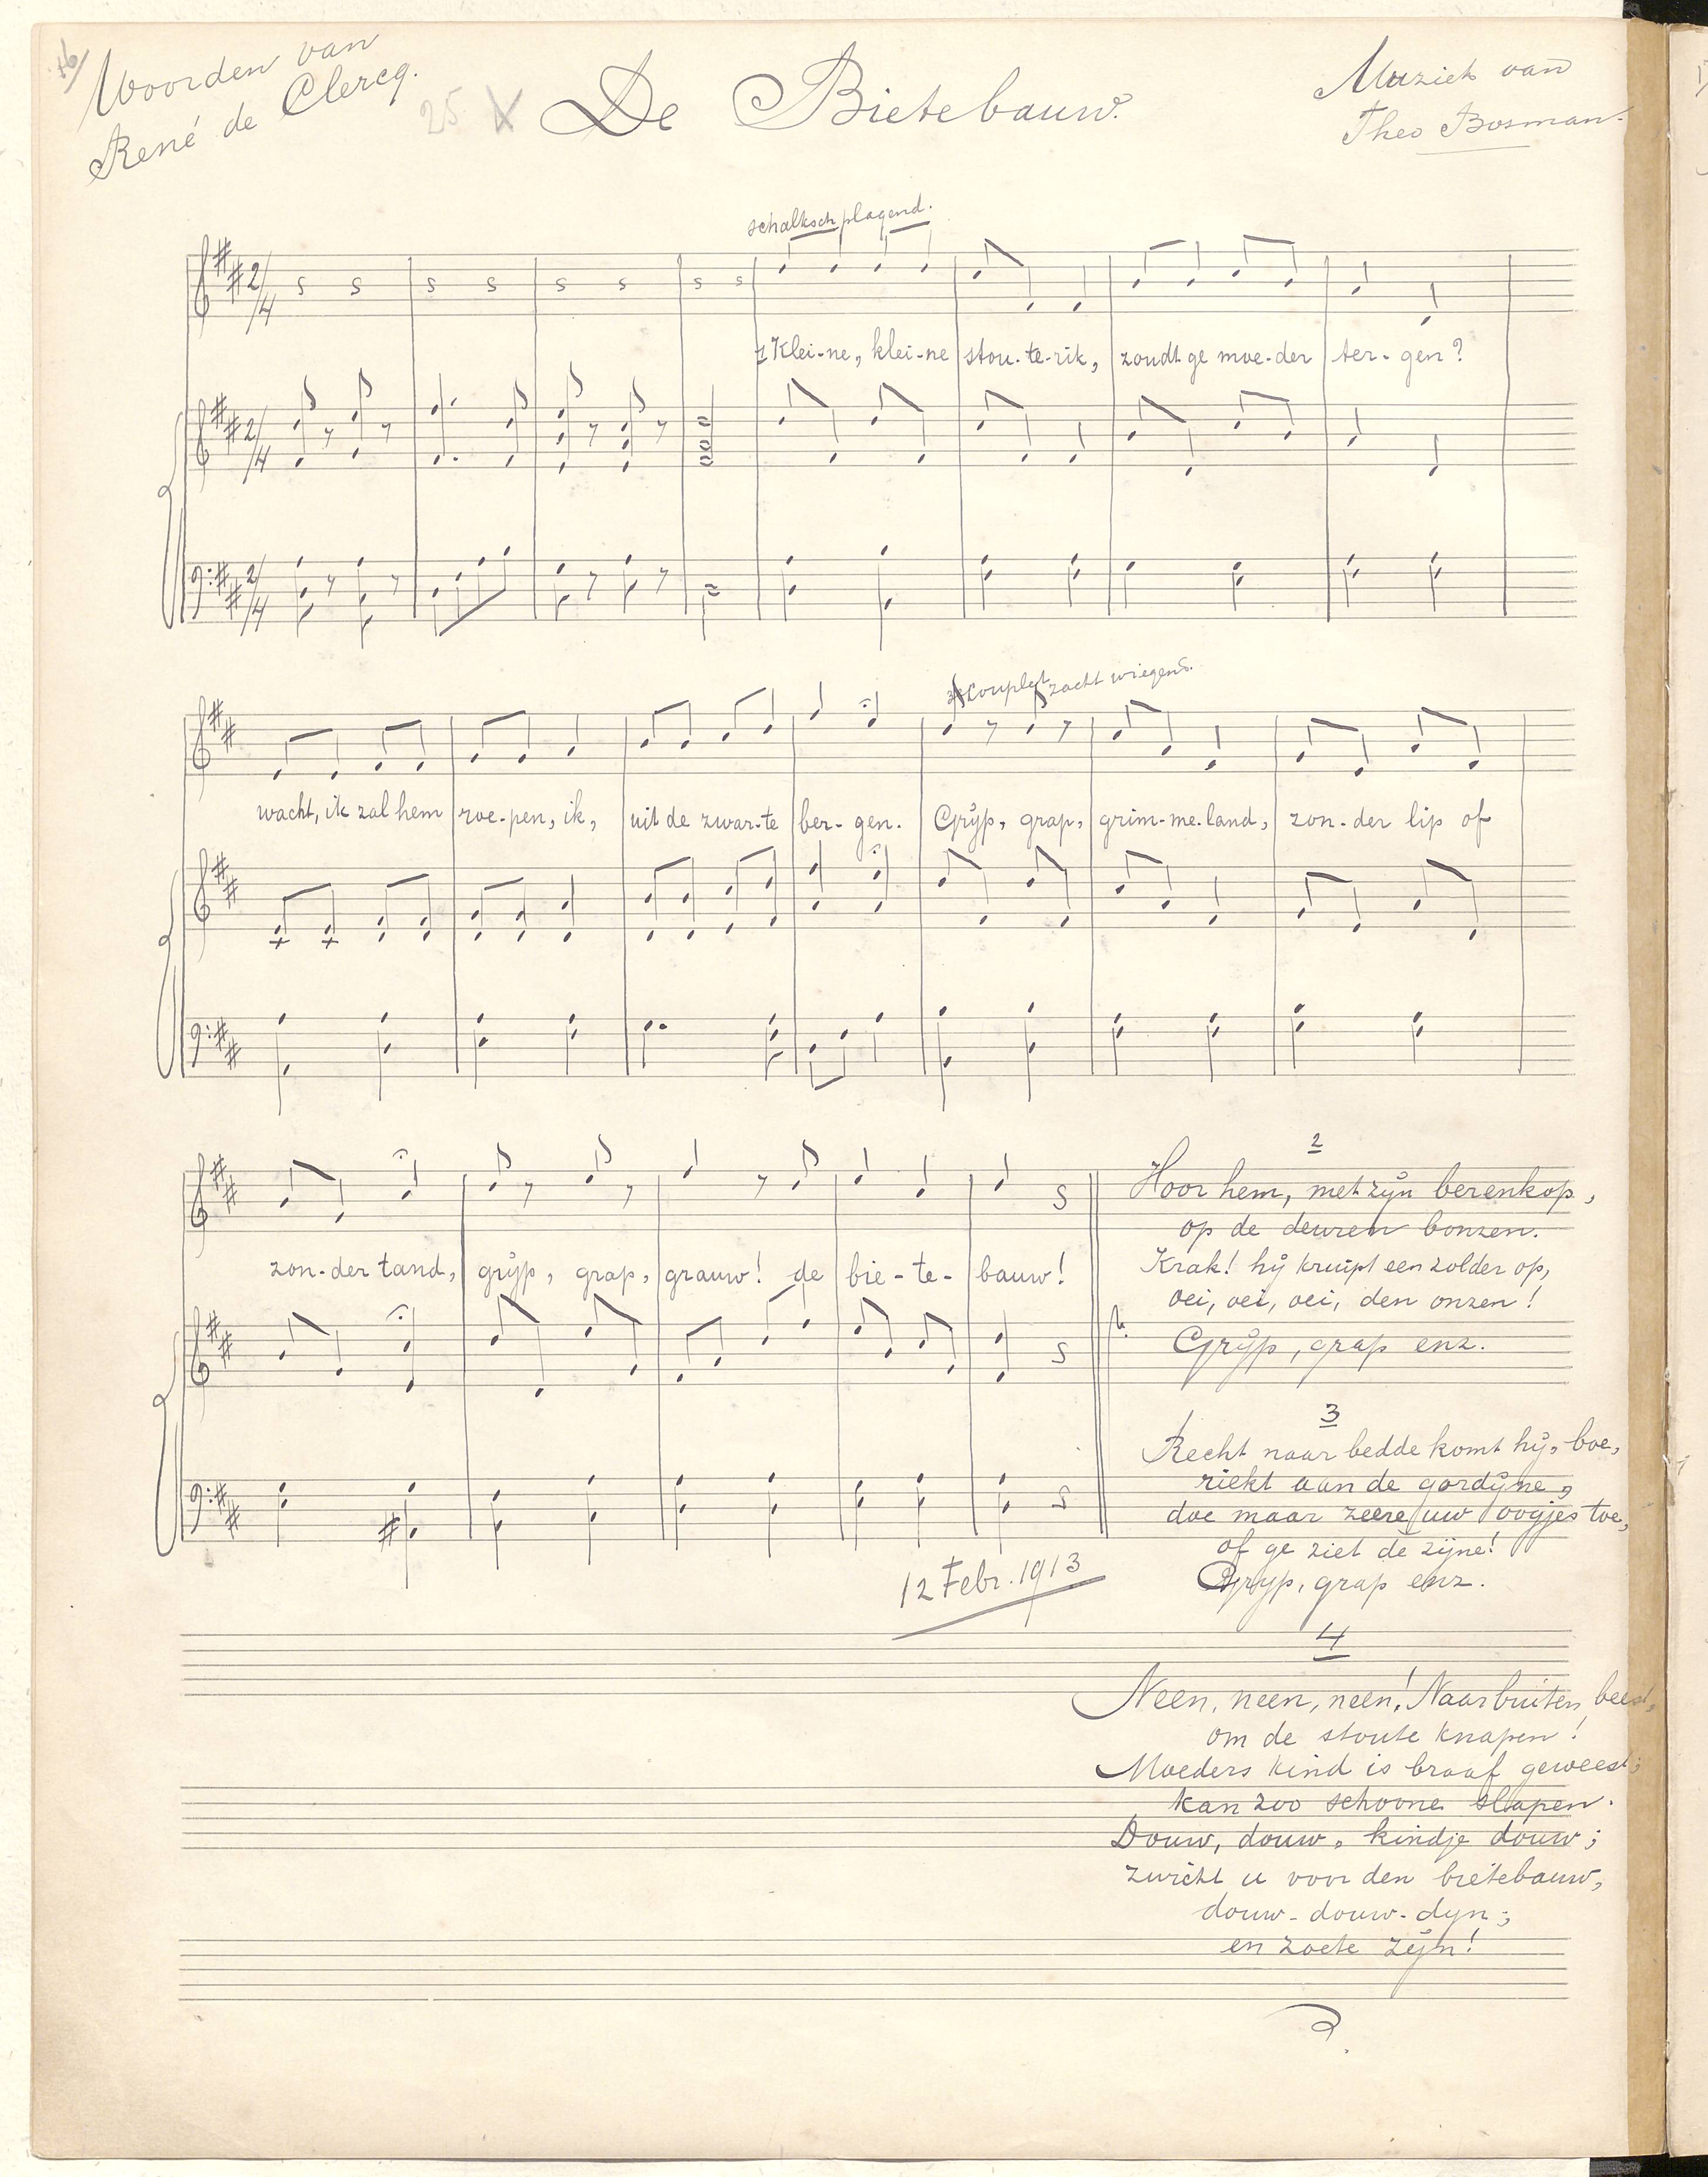 16/
Woorden van
René de Clercq.
25 X
De Bietebauw.
Muziek van
Theo Bosman.
schalksch plagend.
2/4
1 Klei-ne, klei-ne stou-te-rik, zoudt ge moe-der ter-gen?
2/4
2/4
3e Couplet zacht wiegend.
wacht, ik zal hem roe-pen, ik, uit de zwar-te ber-gen. Grijp, grap, grim-me-land, zon-der lip of
zon-der tand, grijp, grap, grauw! de bie-te-bauw!
12 Febr. 1913
2
Hoor hem, met zijn berenkop,
op de deuren bonzen.
Krak! hij kruipt een zolder op,
oei, oei, oei, den onzen!
Grijp, grap enz.
3
Recht naar bedde komt hij, boe,
riekt aan de gordijne,
doe maar zeere uw oogjes toe,
of ge ziet de zijne!
Grijp, grap enz.
4
Neen, neen, neen! Naar buiten, beest,
om de stoute knapen!
Moeders kind is braaf geweest;
kan zoo schoone slapen.
Douw, douw, kindje douw;
zwicht u voor den bietebauw,
douw-douw-dijn;
en zoete zijn!